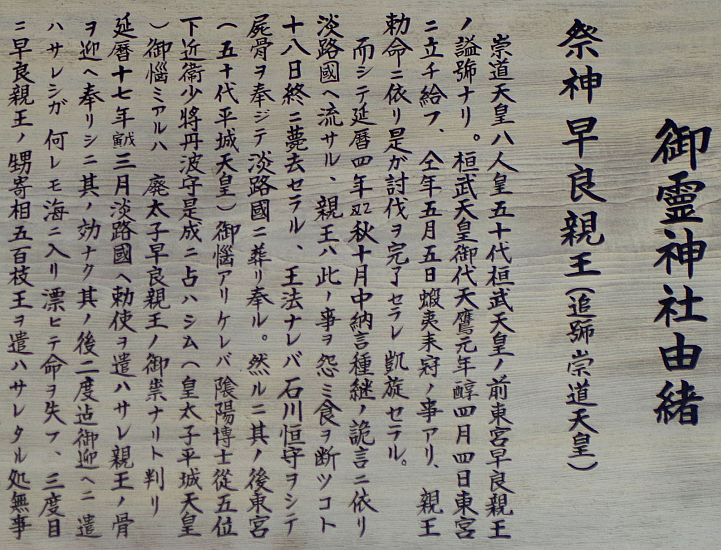 御霊神社由緒
祭神早良親王(追號崇道天皇)
崇道天皇ハ人皇五十代桓武天皇ノ前東宮早良親王
ノ謚號ナリ。桓武天皇御代天鷹元年醇四月四日東宮
ニ立チ給フ、仝年五月五日蝦夷来寇ノ事アリ、親王
勅命ニ依リ是ガ討伐ヲ完了セラレ凱旋セラル。
而シテ延暦四年 秋十月中納言種継ノ詭言ニ依リ
淡路國ヘ流サル、親王ハ此ノ事ヲ怨ミ食ヲ断ツコト
十八日終ニ薨去セラル、王法ナレバ石川恒守ヲシテ
屍骨ヲ奉ジテ淡路國ニ葬リ奉ル。然ルニ其ノ後東宮
(五十代平城天皇)御惱アリケレバ陰陽博士從五位
下近衛少將丹波守是成ニ占ハシム(皇太子平城天皇
)御惱ミアルハ廃太子早良親王ノ御祟ナリト判リ
延暦十七年寅戊三月淡路國ヘ勅使ヲ遣ハサレ親王ノ骨
ヲ迎ヘ奉リシニ其ノ効ナク其ノ後二度迠御迎ヘニ遣
ハサレシガ何レモ海ニ入リ漂ヒテ命ヲ失フ、三度目
ニ早良親王ノ甥寄相五百枝王ヲ遣ハサレタル処無事